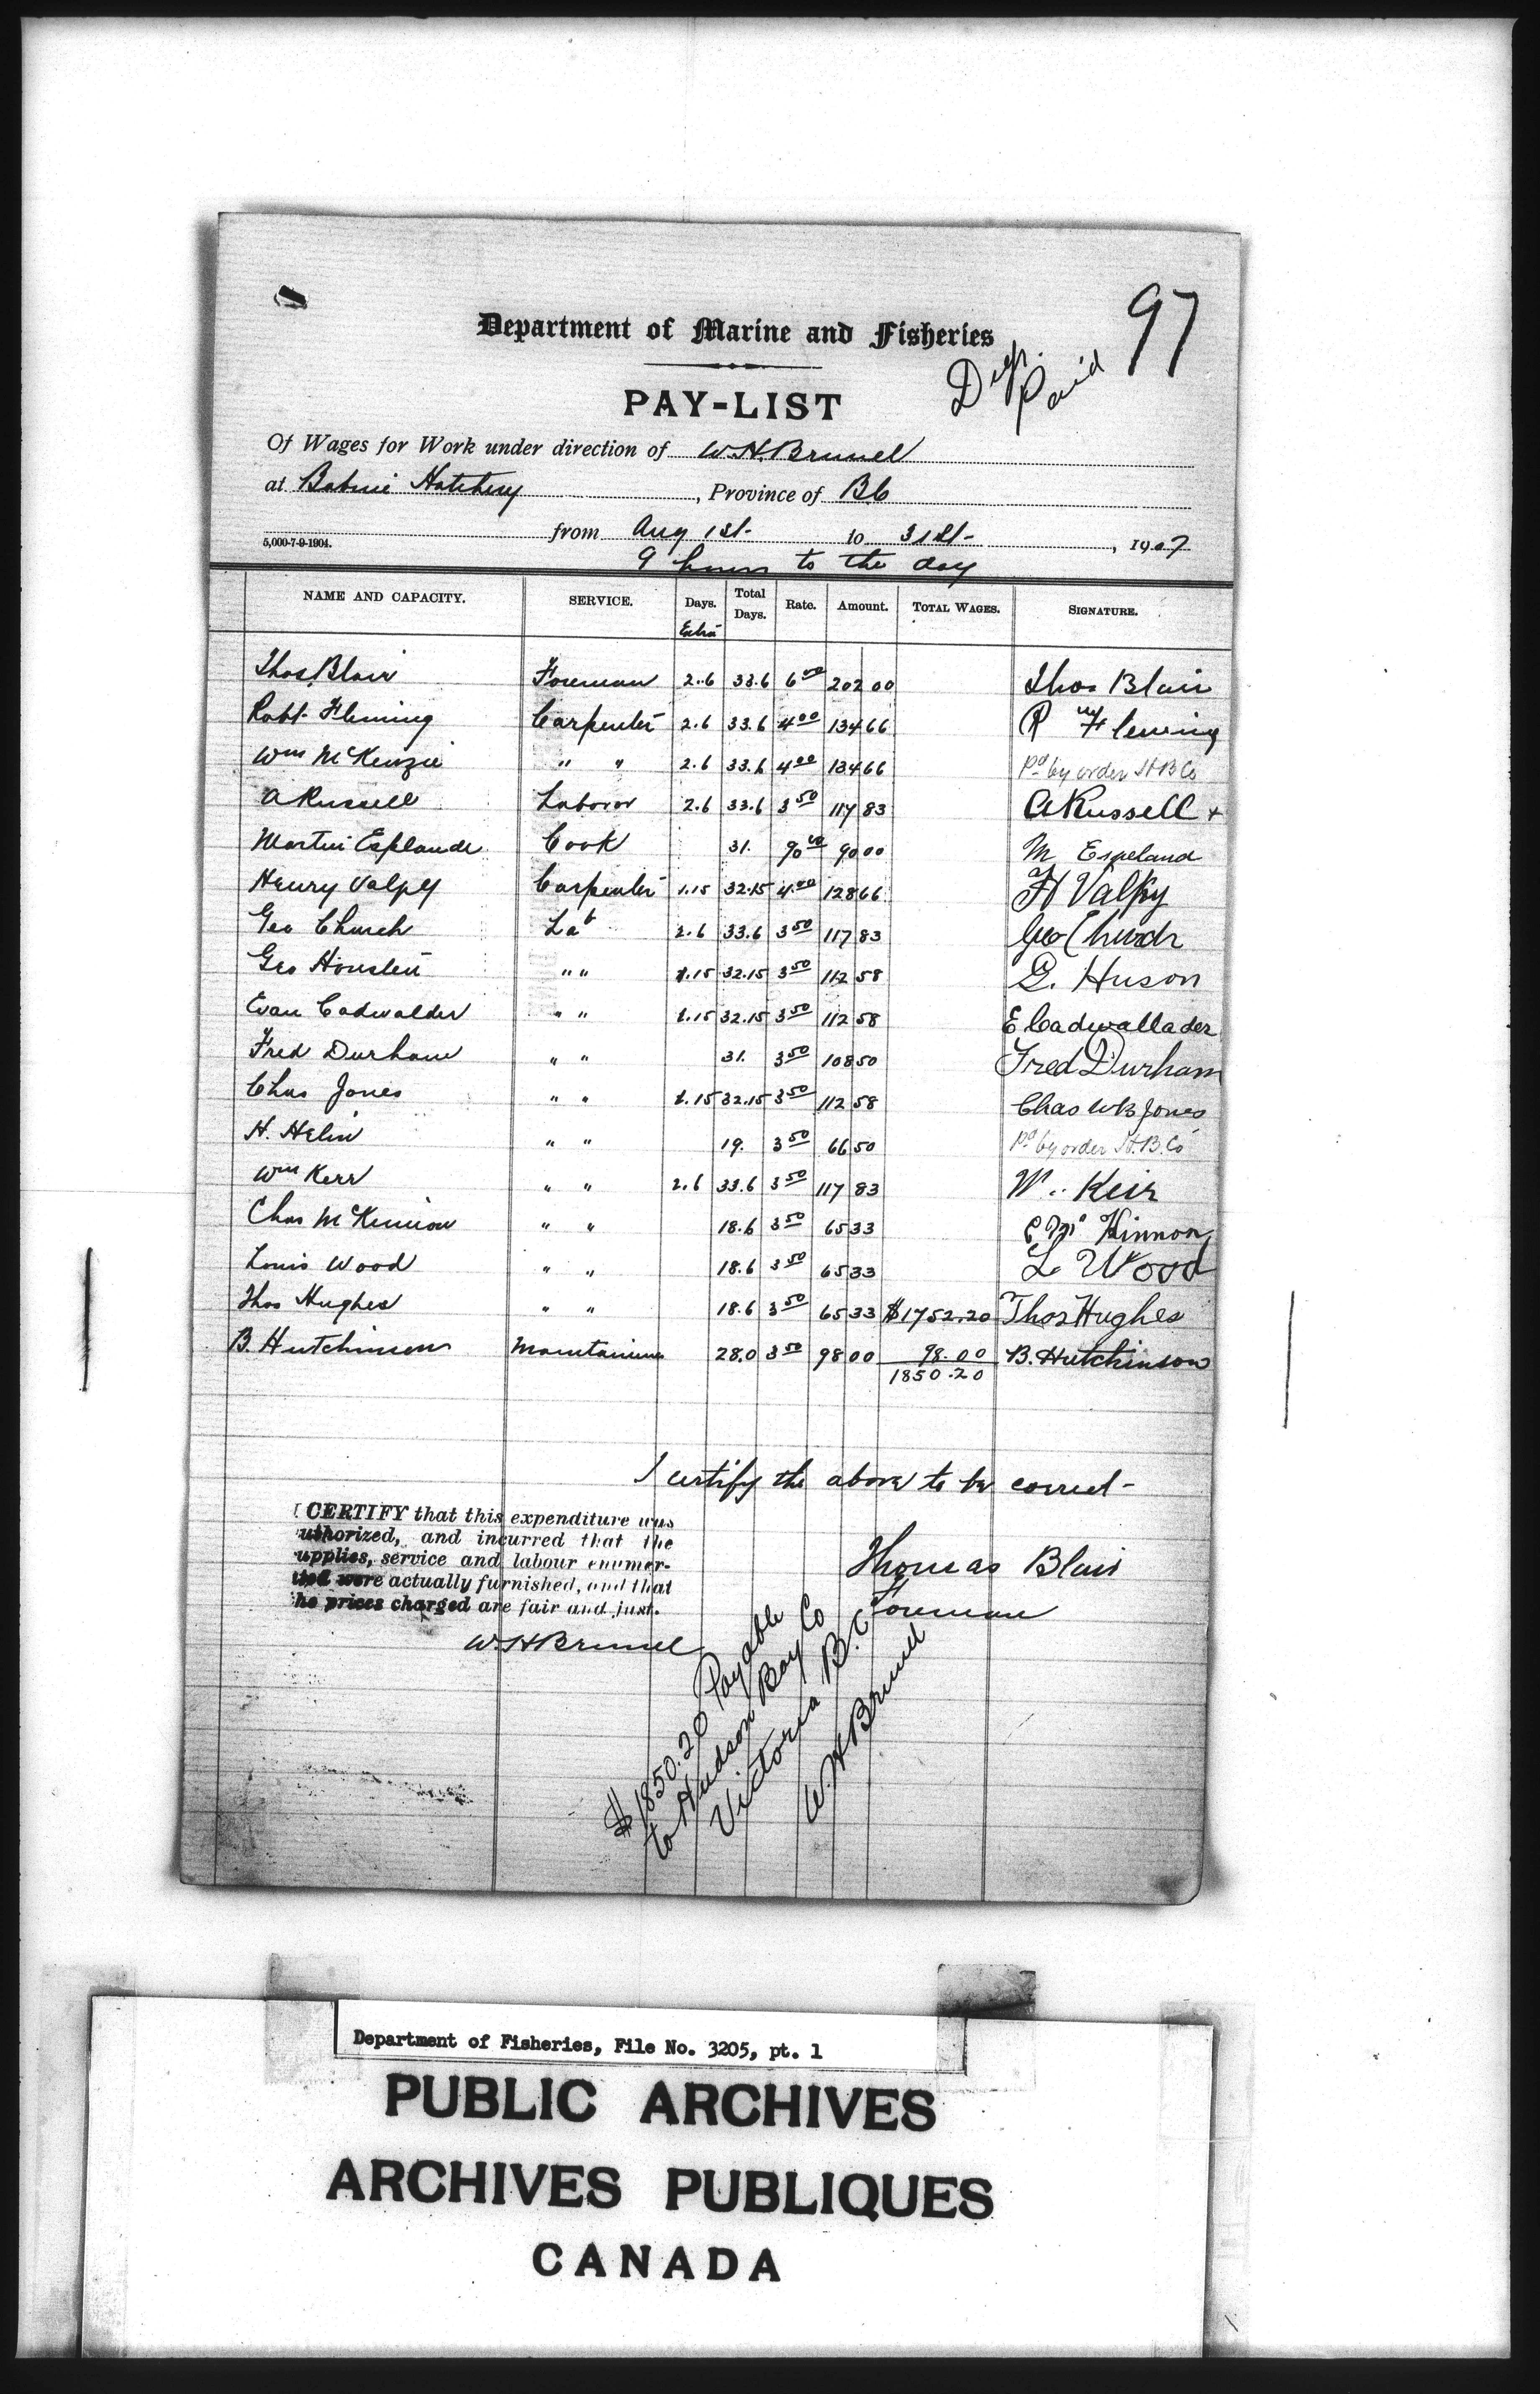 97
Department of Marine and Fisheries
Paid
PAY-LIST
Of Wages for Work under direction of W.H.Brunel
at Babine Hatchery, Province of BC
from Aug 1st- to 31st- , 1907
5,000-7-9-1904.
9 hours to the day
NAME AND CAPACITY. SERVICE. Days. Total Days. Rate. Amount. TOTAL WAGES. SIGNATURE.
Extra
Thos. Blair Foreman 2.6 33.6 6 00 202 00 Thos Blair
Robt. Fleming Carpenter 2.6 33.6 4 00 134 66 R Fleming
Wm McKenzie " " 2.6 33.6 4 00 134 66 pd by order H B Co
A Russell Laboror 2.6 33.6 3 50 117 83 A Russell +
Martin Esplande Cook 31. 90 00 90 00 M Espeland
Henry Valpy Carpenter 1.15 32.15 4 00 128 66 H Valpy
Geo Church Lab 2.6 33.6 3 50 117 83 Geo Church
Geo Housten " " 1.15 32.15 3 50 112 58 G. Huson
Evan Cadwalder " " 1.15 32.15 3 50 112 58 E Cadwallader
Fred Durham " " 31. 3 50 108 50 Fred Durham
Chas Jones " " 1.15 32.15 3 50 112 58 Chas WB Jones
H. Helin " " 19. 3 50 66 50 pd by order H.B.Co
Wm Kerr " " 2.6 33.6 3 50 117 83 W.. Keir
Chas McKinnon " " 18.6 3 50 65 33 C Mc Kinnon
Louis Wood " " 18.6 3 50 65 33 L Wood
Thos Hughes " " 18.6 3 50 65 33 $1752.20 Thos Hughes
B. Hutchinson 28.0 3 50 98 00 98.00 B. Hutchinson
1850.20
I certify the above to be correct-
I CERTIFY that this expenditure was
uthorized, and incurred that the
upplies, service and labour enumer-
ted were actually furnished, and that
he prices charged are fair and just.
Thomas Blair
Foreman
W.H Brunel
$1850.20 Payable
to Hudson Bay Co
Victoria B.C
W.H Brunel
Department of Fisheries, File No. 3205, pt. 1
PUBLIC ARCHIVES
ARCHIVES PUBLIQUES
CANADA